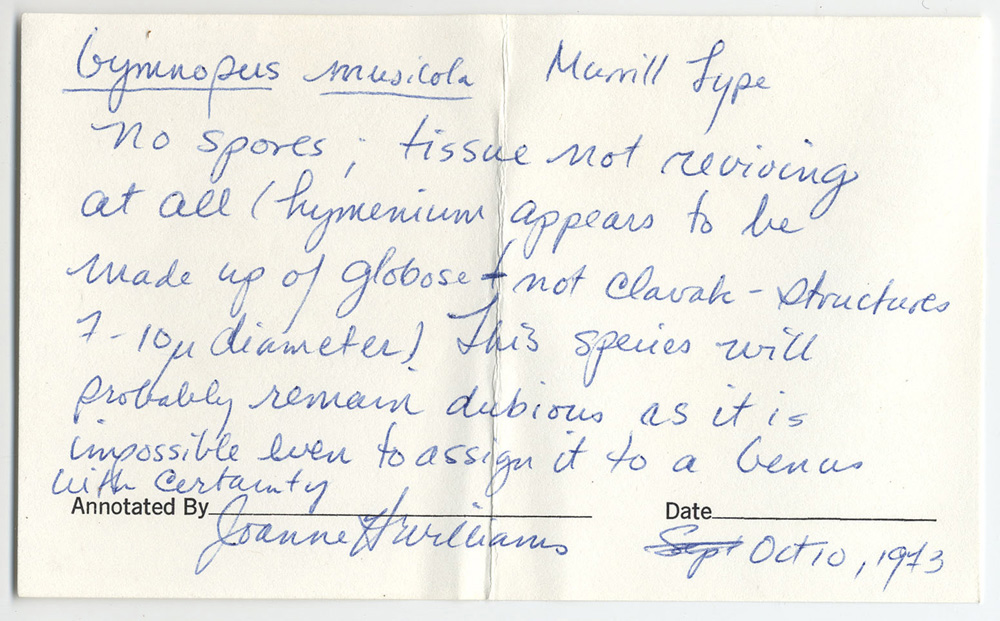 Gymnopus musicola Murrill Type
No spores ; tissue not reviving
at all (hymenium appears to be
made up of globose - not clavate - structures
7-10µ diameter) This species will
probably remain dubious as it is
impossible even to assign it to a Genus
with certainty
Annotated By Date
Joanne H Williams Sept Oct 10, 1973